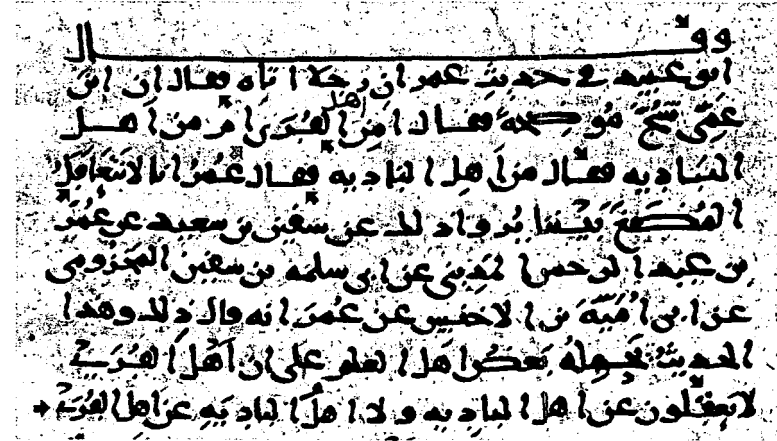 وقال
ابو عبيد في حديث عمر ان رجلا اتاه فقال ان ابن
عمى شج موضحة فقال امن اهل القرى ام من اهل
البادية فقال من اهل البادية فقال عمر انا لا نتعاقل
المضغ بيننا يروا ذلك عن سفين بن سعيد عن عمر
بن عبد الرحمن المديني عن ابي سلمة بن سفين المخزومي
عن ابي امية بن الاخنس عن عمر انه قال ذلك وهذا
الحديث يحمله بعض اهل العلم على ان اهل القرى
لا يعقلون عن اهل البادية ولا اهل البادية عن اهل القرى